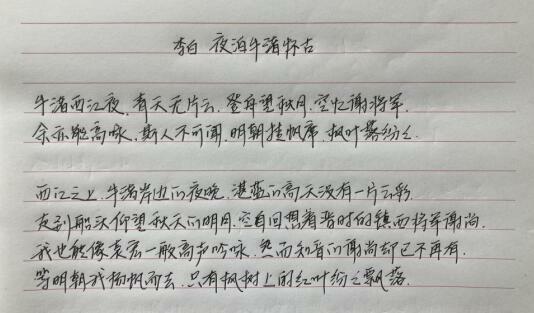 李白 夜泊牛渚怀古
牛渚西江夜，青天无片云，登舟望秋月，空忆谢将军。
余亦能高咏，斯人不可闻，明朝挂帆席，枫叶落纷纷。
西江之上，牛渚岸边的夜晚，湛蓝的高天没有一片云彩。
友到船头仰望秋天的明月，空自回想着昔时的镇西将军谢尚。
我也能像袁宏一般高声吟咏，然而知音的谢尚却已不再有。
等明朝我扬帆而去，只有枫树上的红叶纷纷飘落。